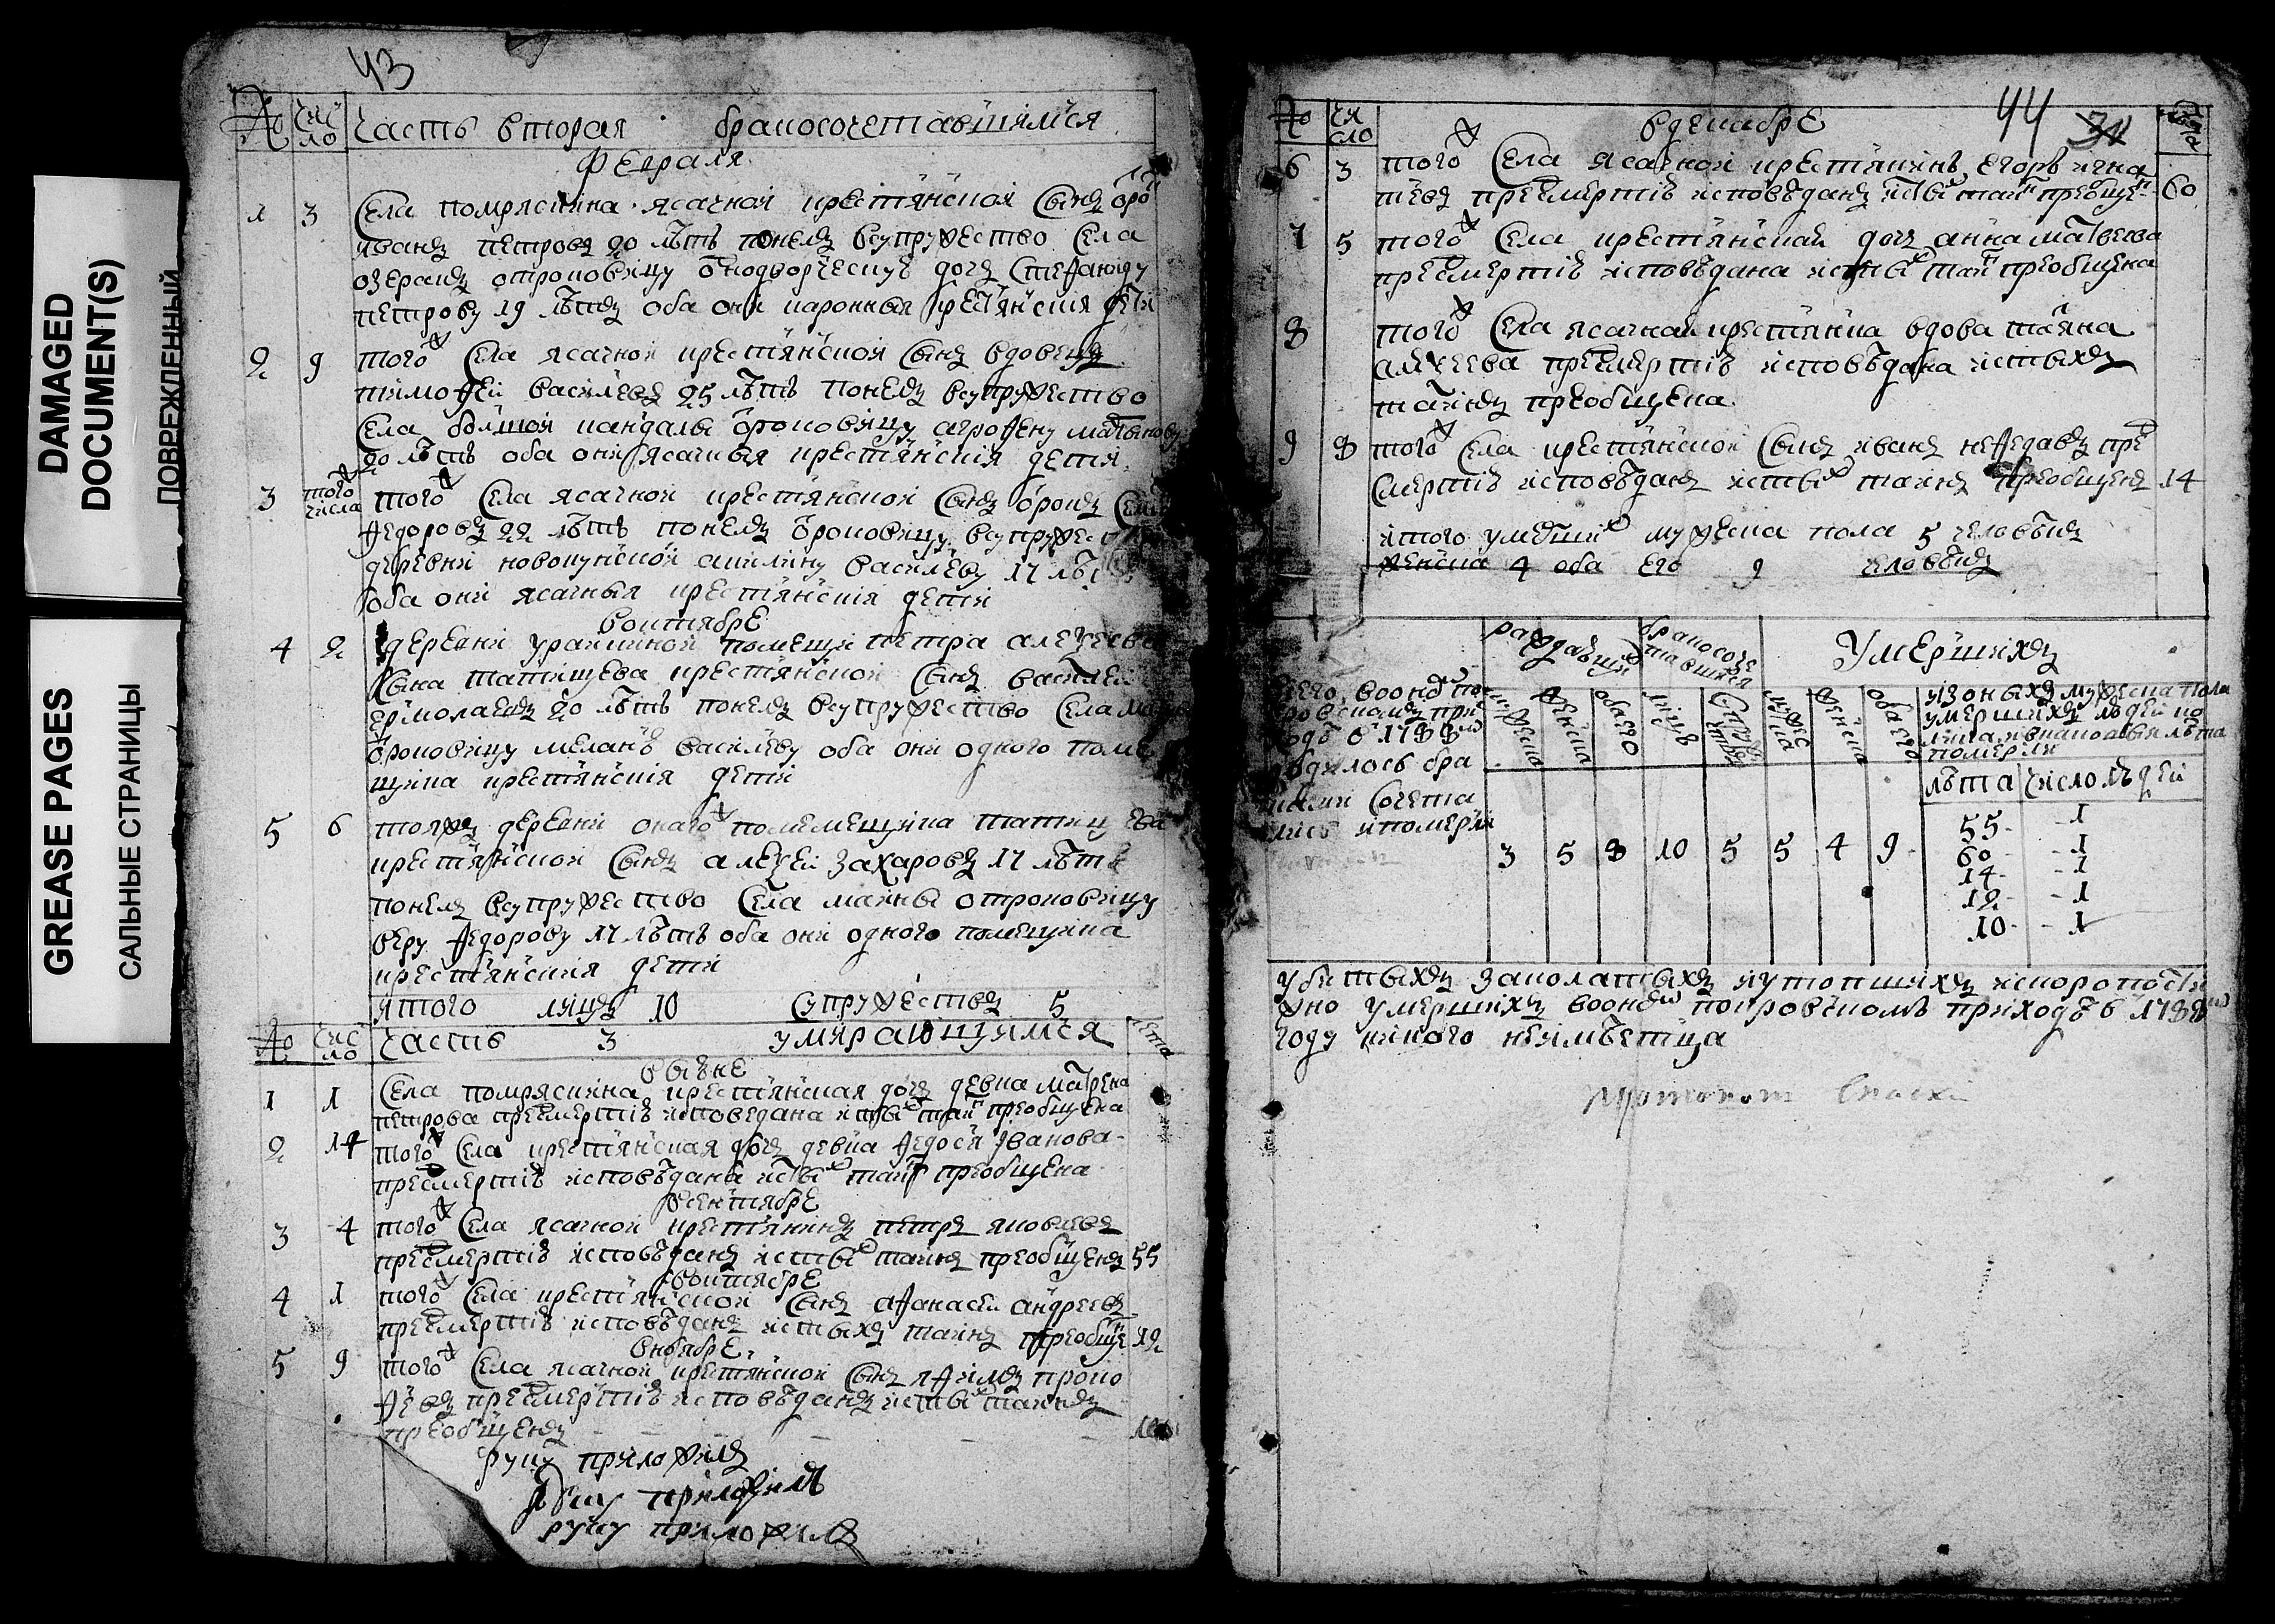 DAMAGED
DOCUMENT(S)
ПОВРЕЖДЕННЫЙ
GREASE PAGES
САЛЬНЫЕ СТРАНИЦЫ
43
№ число Часть вторая бракосочетавшимся
Февраля
1 3 Села помряскина ясачной крестянской сынъ отро
иванъ петровъ 20 лѣтъ понелъ всупружество села
озерокъ отроковицу однодворческую дочъ стефаниду
петрову 19 лѣтъ оба они коронныя крестянския дети
2 9 того ж села ясачной крестянской сынъ вдовецъ
тимофеи василевъ 25 лѣтъ понелъ всупружество
села болшой кандалы отроковицу агрофену
20 лѣтъ оба они ясачныя крестянския дети
3 того ж числа того ж села ясачной крестянской сынъ отрокъ
федоровъ 22 лѣтъ понелъ отроковицу
деревни акилину василеву 17
оба они ясачныя крестянския дети
воктябре
4 2 деревни урайкиной помещи петра алексеева
сына татищева крестянской сынъ василеи
ермолаевъ 20 лѣтъ понелъ всупружество села
отроковицу меланю василеву оба они одного поме
щика крестянския дети
5 6 тояжъ деревни онаго ж помемещика татищева
крестянской сынъ алексеи захаровъ 17 лѣтъ
понелъ всупружество села маины отроковицу
веру федорову 17 лѣтъ оба они одного помещика
крестянския дети
итого лицъ 10 супружествъ 5
№ число Часть 3 умирающимся лета
1 1 Села помряскина крестянская дочъ девка матрена
петрова пресмертию исповедана истых таин преобщена
2 14 того ж села крестянская дочъ девка федося иванова
пресмертию исповѣдана истых таин преобщена
всентябре
3 4 того ж села ясачной крестянинъ петръ яковлевъ
пресмертию исповѣданъ истых таинъ преобщенъ 55
воктябре
4 1 того ж села крестянской сынъ афанасеи андреевъ
пресмертию исповѣданъ истыхъ таинъ преобще 12
вноябре
5 9 того ж села ясачной крестянской сынъ ефимъ проко
фьевъ пресмертию исповѣданъ истых таинъ
преобщенъ
руку приложилъ
руку приложилъ
руку приложилъ
44 31
№ число вдекабре лета
6 3 того ж села ясачной крестянинъ егоръ игна
тьевъ пресмертию исповѣданъ истых таин преобще 60
7 5 того ж села крестянская дочъ анна матвеева
пресмертию исповѣдана истых таин преобщена
8 того ж села ясачнаи крестянка вдова татяна
алексеева пресмертию исповѣдана истыхъ
таинъ преобщена
9 8 того ж села крестянской сынъ иванъ нефедавъ пре
смертию исповѣданъ истых таинъ преобщенъ 14
итого умерших мужеска пола 5 человѣкъ
женска 4 оба его 9 человѣкъ
рождавших бракосочетавшихся Умершихъ
мужеска женска обаего лицъ супружествъ мужес женска обаего
изоныхъ мужеска пола
умершихъ людей
померли
лѣта число людей
3 5 8 10 5 5 4 9
55 - 1
60 - 1
14 - 1
12 - 1
10 - 1
убитыхъ заколатыхъ иутопшихъ искоропости
жно умершихъ воонем покровском приходѣ в 1788 м
году никого неимѣетца